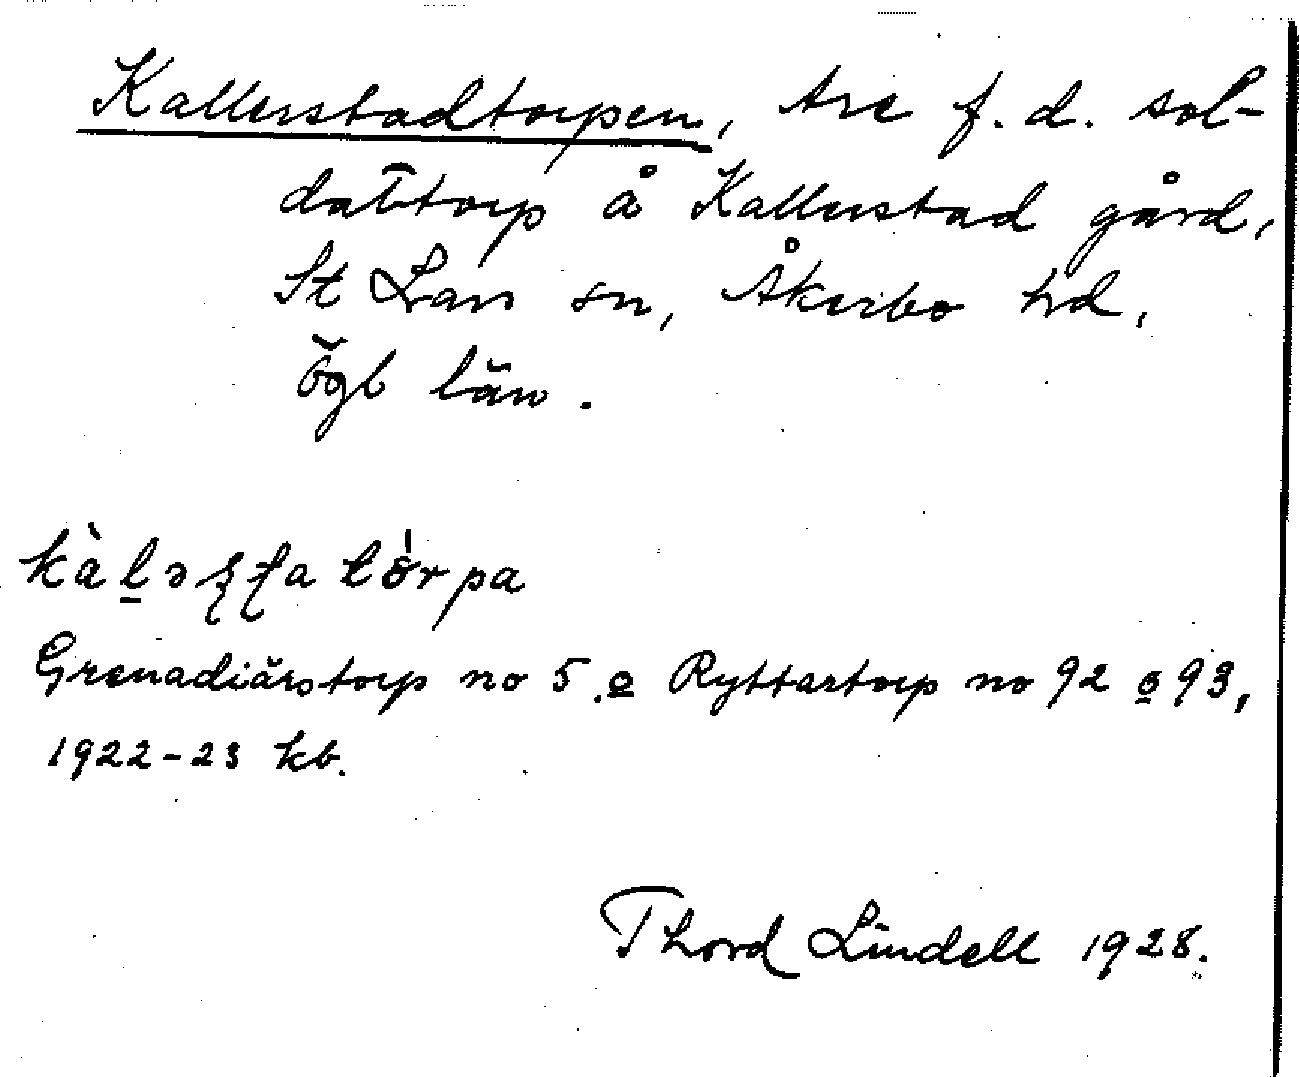 Kallerstadtorpen, tre f. d. sol-
dattorp å Kallerstad gård,
St Lars sn, Åkerbo hd,
Ögl län.
kàḻəʂʈa tö́rpa
Grenadiärstorp no 5 o Ryttartorp no 92 o 93,
1922-23 kb.
Thord Lindell 1928.